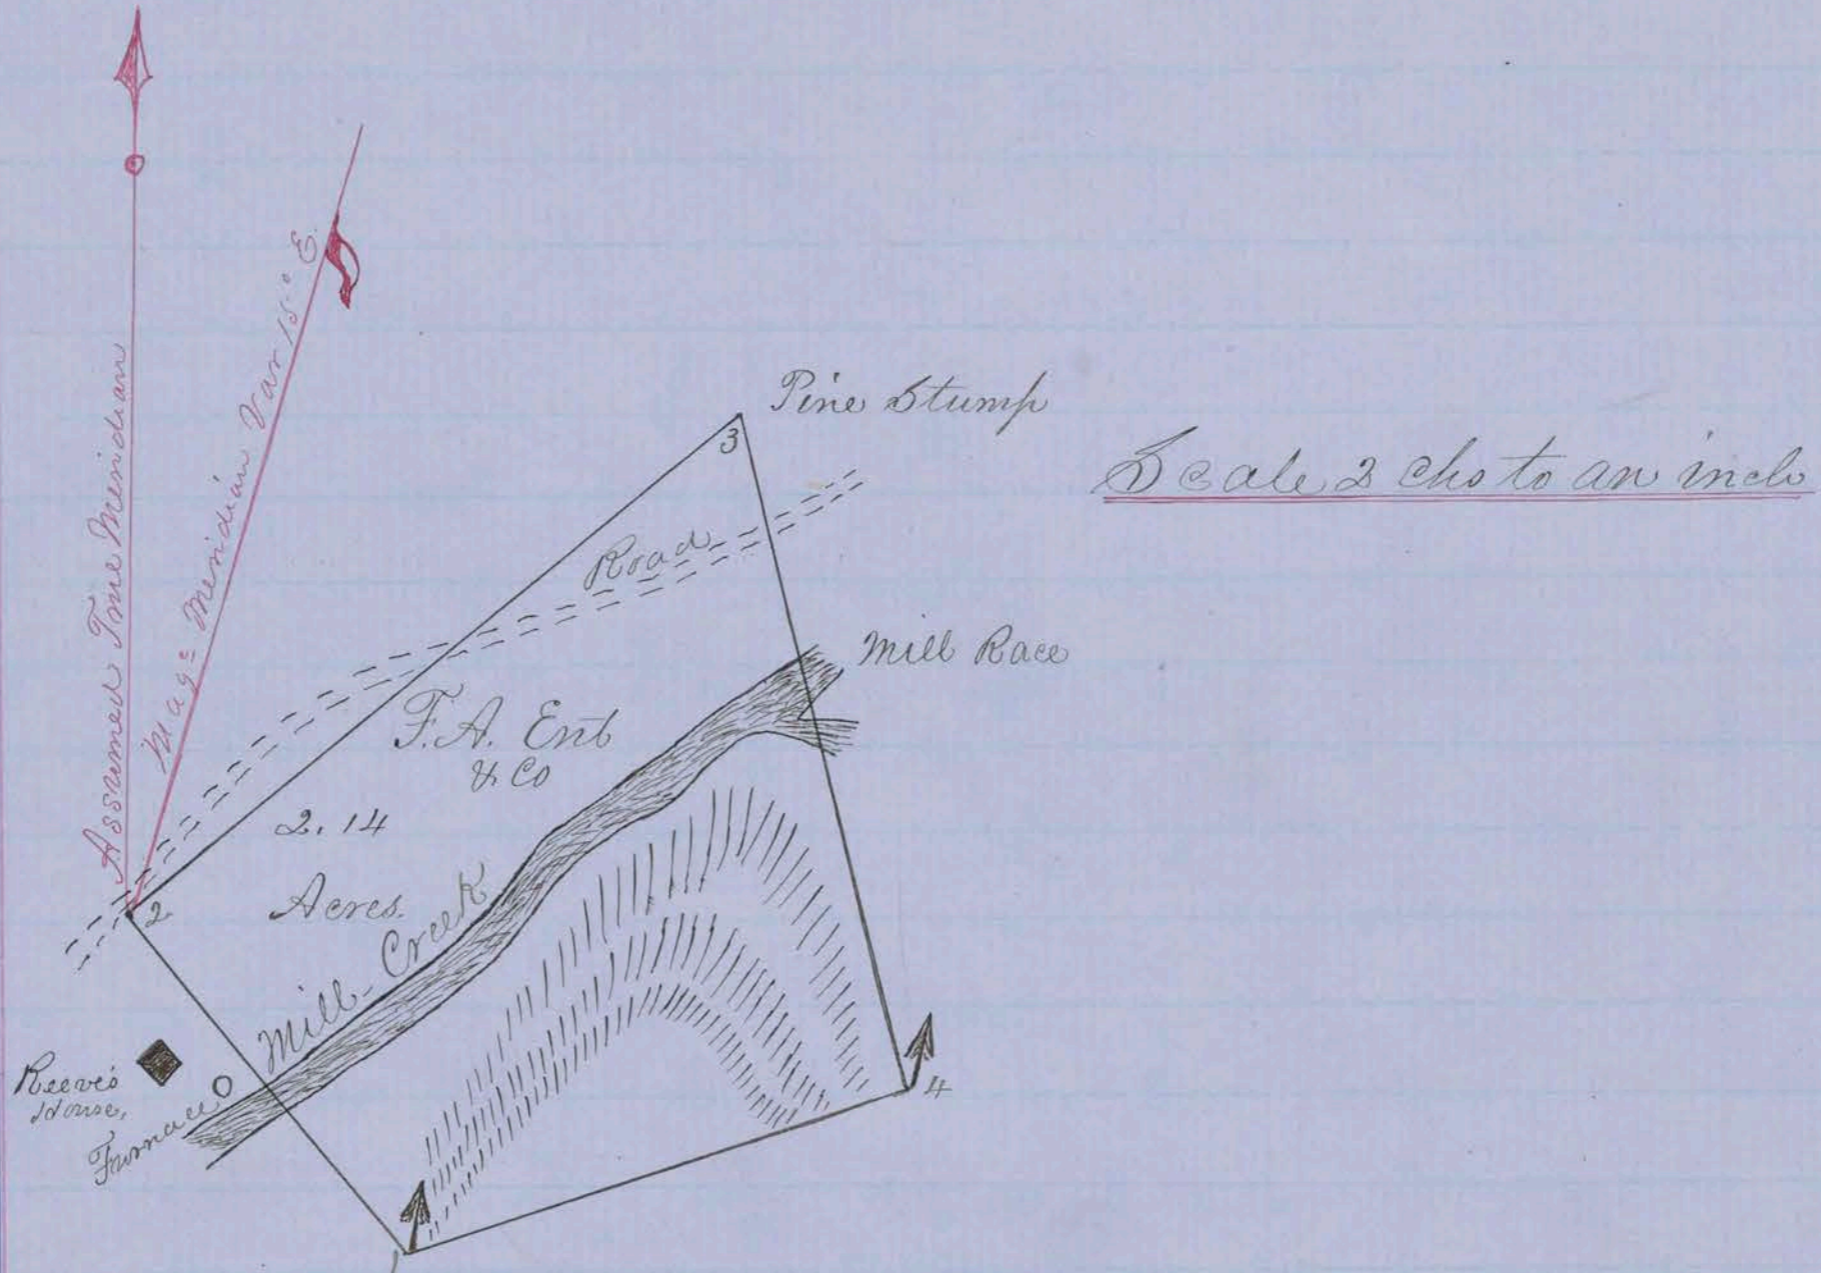 Assumed True Meridian
Mag= Meridian Var 15° E.
Pine Stump
3
Scale 2 chs to an inch
Road
Mill Race
F.A. Ent
& Co
2.14
Acres.
2
Mill Creek
Reeve's
House,
Furnace
4
1